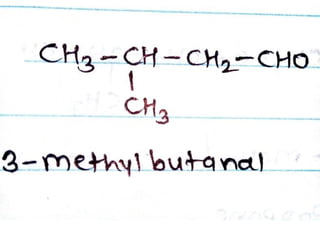 CH₃-CH-CH₂-CHO
|
CH₃
3-methyl butanal